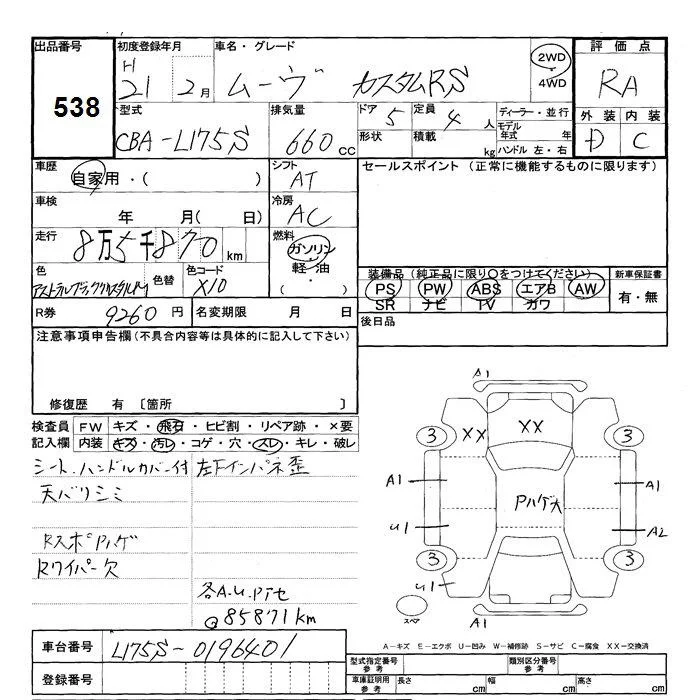 出品番号 初度登録年月 車名・グレード 評価点
538 H 21 2月 ムーヴ カスタムRS 2WD 4WD RA
型式 排気量 ドア 5 定員 4人 ディーラー・並行 外装 内装
CBA-L175S 660cc 形状 積載 kg モデル年式 年 D C
ハンドル 左・右
車歴 自家用・( ) シフト AT セールスポイント (正常に機能するものに限ります)
車検 年 月( 日) 冷房 AC
走行 8万5千870km 燃料 ガソリン
軽油
( ・ )
色 色替 色コード X10 装備品(純正品に限り○をつけてください) 新車保証書
PS PW ABS エアB AW 有・無
SR ナビ TV カワ
R券 9260円 名変期限 月 日 後日品
注意事項申告欄(不具合内容等は具体的に記入して下さい)
修復歴 有 〔箇所 〕
検査員 FW キズ・飛石・ヒビ割・リペア跡・×要
記入欄 内装 キズ・汚レ・コゲ・穴・スレ・キレ・破レ
シート、ハンドルカバー付 左下インパネ歪
天バリシミ
RスポPハゲ
Rワイパー欠
各A.U.Pアセ
@85871km
A1
XX XX
3 3
A1 A1
Pハゲ大
U1 A2
3 3
U1
スペア A1
車台番号 L175S-0196401
A-キズ E-エクボ U-凹み W-補修跡 S-サビ C-腐食 XX-交換済
登録番号
型式指定番号 参考 類別区分番号 参考
車庫証明用 参考 長さ cm 幅 cm 高さ cm